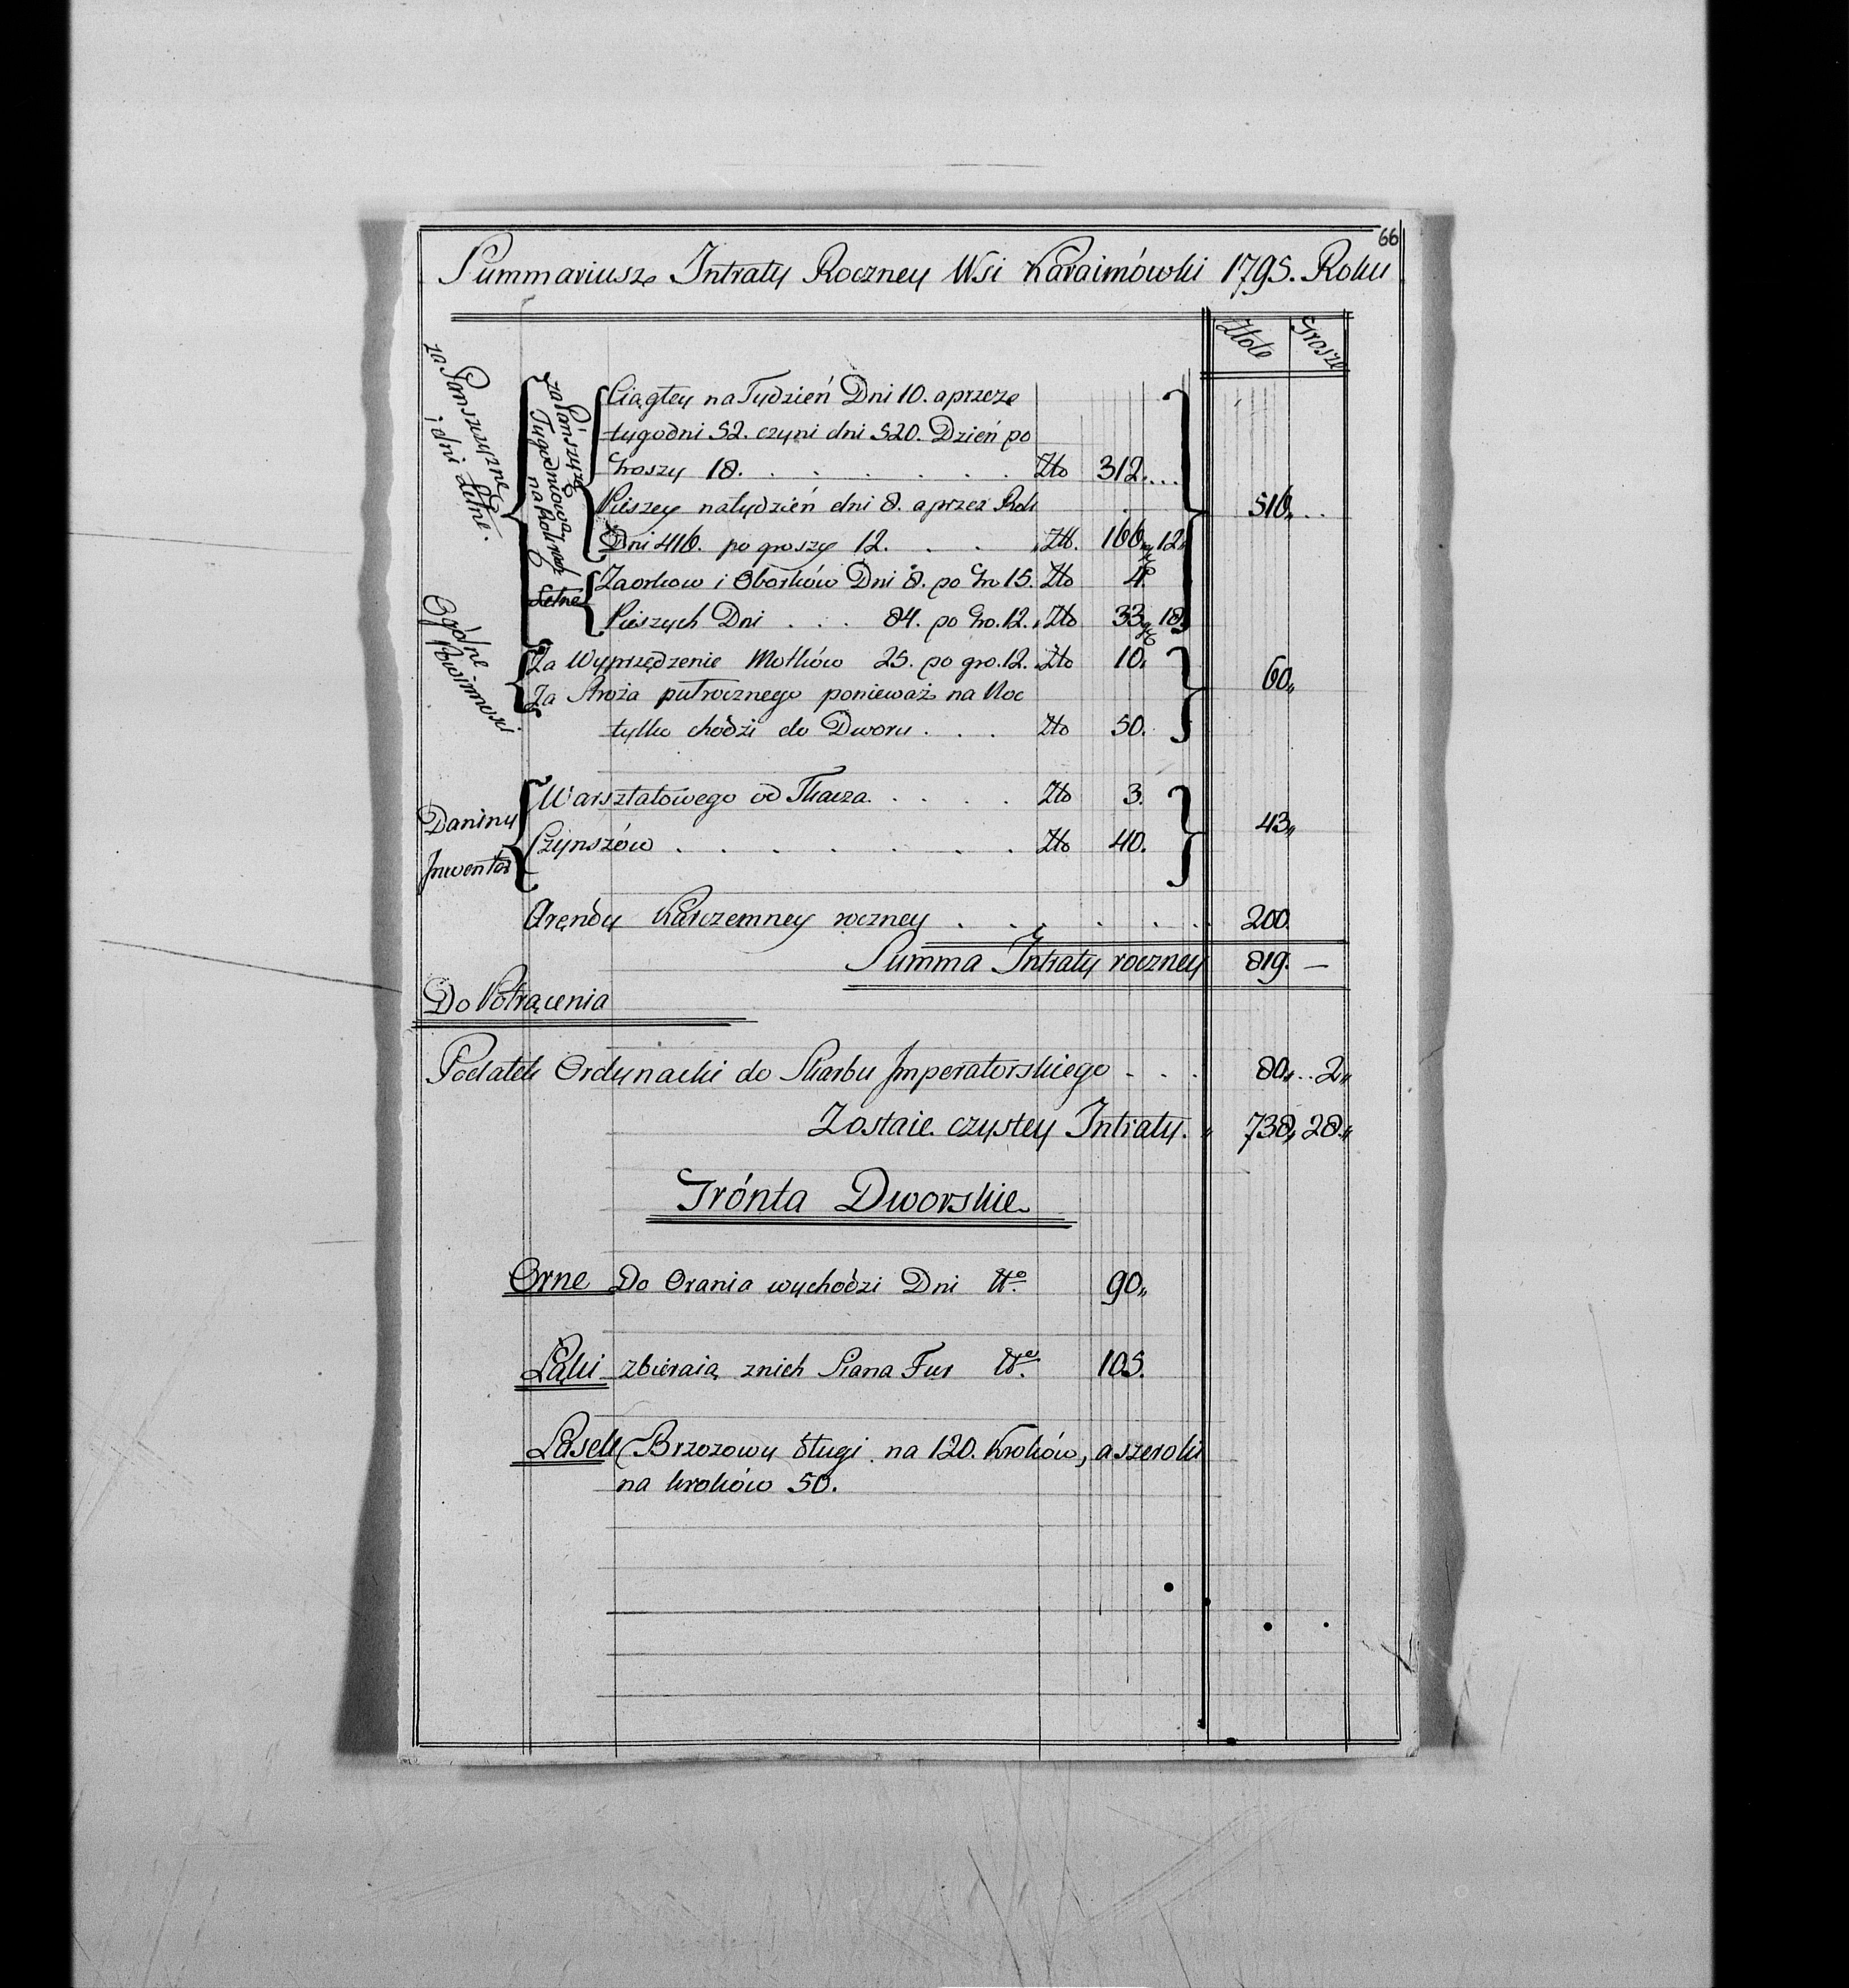 66
Summariusz Intraty Roczney Wsi Karaimówki 1795. Roku
Złote Grosze
za Panszczyznę
i dni Letne.
za Pańszczyznę
Tygodniową
na Rok raz
Ciągłey na Tydzień Dni 10. a przeze
tygodni 52. czyni dni 520. Dzień po
Groszy 18. . . . . . . Zło 312. . . .
Pieszey na tydzień dni 8. a przez Rok
Dni 416. po groszy 12. . . Zło. 166 gr 12.
516,, . .
Letne
Zaorkow i Oborków Dni 8. po Gro 15. Zło 4.
Pieszych Dni . . . 84. po Gro. 12. Zło 33 gr 18.
Ogólne
Powinności
Za Wyprzędzenie Motków 25. po gro. 12. Zło 10.
Za Stroża pułrocznego ponieważ na Noc
tylko chodzi do Dworu . . . Zło 50.
60,,
Daniny
Inwentar
Warsztatowego od Tkacza . . . . Zło 3.
Czynszów . . . . . . . Zło 40.
43,,
Arendy Karczemney roczney . . . . . . 200.
Summa Intraty roczney 819. —
Do Potrącenia
Podatek Ordynacki do Skarbu Imperatorskiego . . . 80,, . . 2,,
Zostaie czystey Intraty. 738,, 28,,
Grónta Dworskie
Orne Do Orania wychodzi Dni No. 90,,
Łąki zbieraią znich Siana Fur No. 105.
Lasek Brzozowy długi na 120. Kroków, a szeroki
na kroków 50.